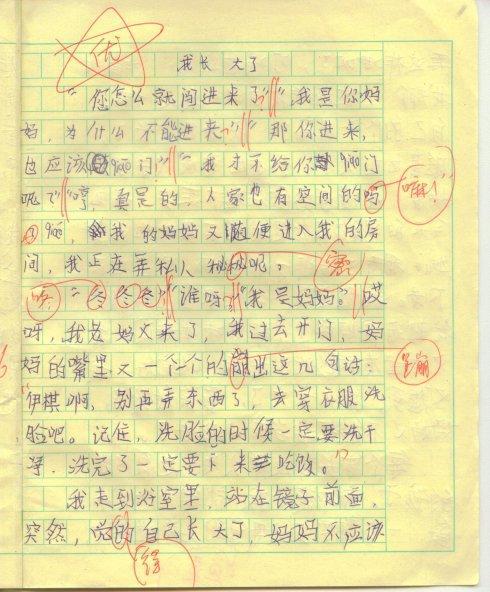 优
我长大了
“您怎么就闯进来了?”“我是你妈
妈,为什么不能进来?”“那你进来,
也应该qiao门!”“我才不给你qiao门
呢!”“哼,真是的,人家也有空间的吗
嘛!”
我的妈妈又随便进入我的房
间,我正在弄私人秘秘呢。
密
咚“冬冬冬”“谁呀?”“我是妈妈。”“哎
呀,我老妈又来了,我过去开门,妈
妈的嘴里又一个个的崩出这几句话:
蹦
“伊棋啊,别再弄东西了,去穿衣服洗
脸吧。记住,洗脸的时候一定要洗干
净,洗完了一定要下来吃饭。”
我走到浴室里,站在镜子前面,
突然,觉的自己长大了,妈妈不应该
得